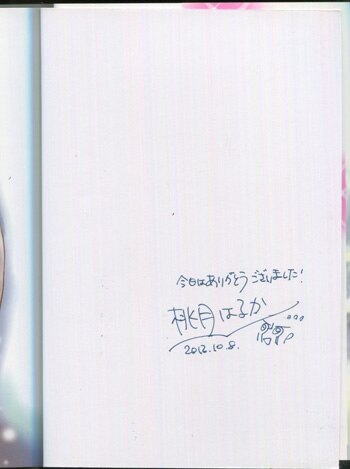 今日はありがとうございました!
桃月はるか
2012.10.8.